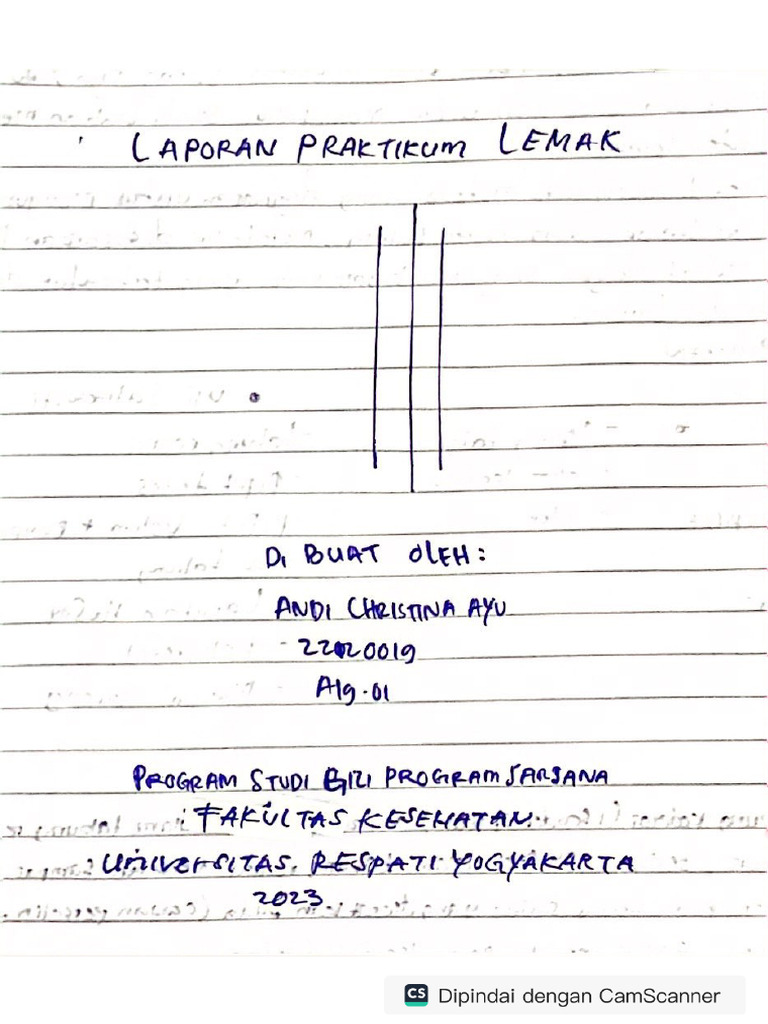 LAPORAN PRAKTIKUM LEMAK
Di BUAT OLEH:
ANDI CHRISTINA AYU
22120019
A19.01
PROGRAM STUDI GIZI PROGRAM SARJANA
FAKULTAS KESEHATAN
UNIVERSITAS RESPATI YOGYAKARTA
2023
CS Dipindai dengan CamScanner